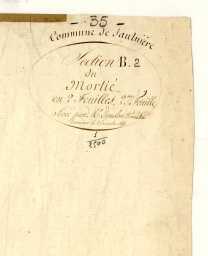 - 35 -
Commune de Saulnière
Section B. 2
du
Mortié
en 2 Feuilles, 2me Feuille
1
2500